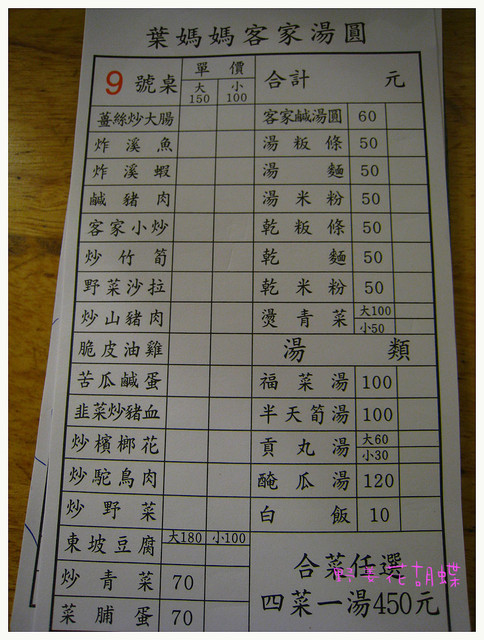 葉媽媽客家湯圓
9 號桌 單價 大150 小100 合計 元
薑絲炒大腸 客家鹹湯圓 60
炸溪魚 湯粄條 50
炸溪蝦 湯麵 50
鹹豬肉 湯米粉 50
客家小炒 乾粄條 50
炒竹筍 乾麵 50
野菜沙拉 乾米粉 50
炒山豬肉 燙青菜 大100 小50
脆皮油雞 湯類
苦瓜鹹蛋 福菜湯 100
韭菜炒豬血 半天筍湯 100
炒檳榔花 貢丸湯 大60 小30
炒駝鳥肉 醃瓜湯 120
炒野菜 白飯 10
東坡豆腐 大180 小100
炒青菜 70 合菜任選
菜脯蛋 70 四菜一湯450元
野薑花胡蝶